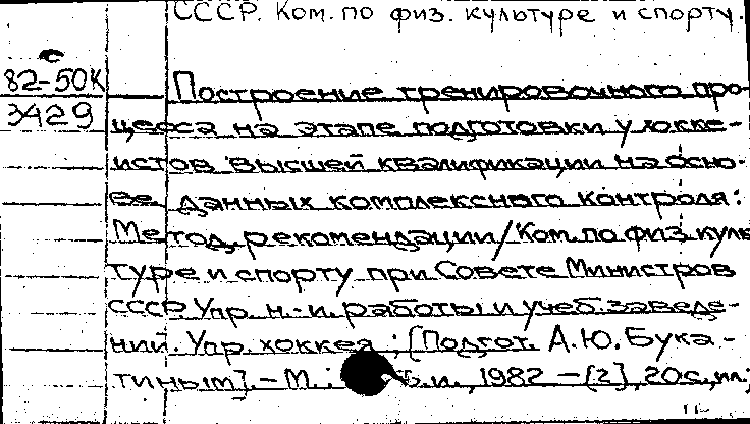 СССР. Ком. по физ. культуре и спорту.
82-50К
3429
Построение тренировочного про-
цесса на этапе подготовки у хокке-
истов высшей квалификации на осно-
ве данных комплексного контроля:
Метод. рекомендации/Ком. по физ. куль
туре и спорту при Совете Министров
СССР. Упр. н.-и. работы и учеб. заведе-
ний. Упр. хоккея; [Подгот. А.Ю. Бука-
тиным]. - М.: Б.и., 1982 - [2], 20 с., ил;